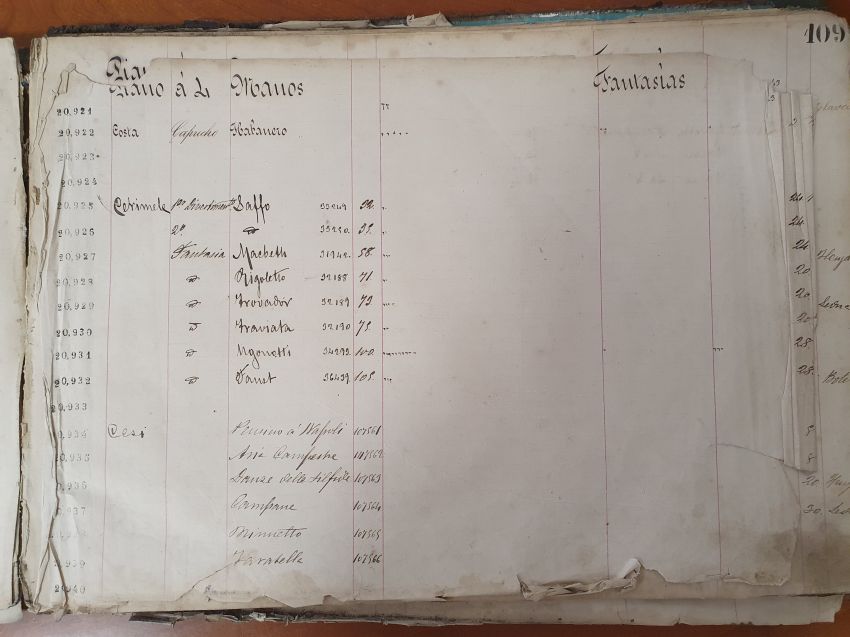 109
Piano á 4 Manos Fantasías
20,921
20,922 Costa Capricho Habanero 2
20,923
20,924
20,925 Cerimele 1er Saffo 33249 32 24
20,926 2º 33250 33 24
20,927 Fantasia Macbeth 31942 58 24
20,928 Rigoletto 32188 71 20
20,929 Trovador 32189 73 20
20,930 Traviata 32190 75 20
20,931 Ugonotti 34293 100 28
20,932 Faust 36439 105 28
20,933
20,934 Cesi á Napoli 107561 8
20,935 Aria Campestre 107562 8
20,936 Danze delle Silfidi 107563 20
20,937 Campane 107564 30
Minuetto 107565
20,939 Taratella 107566
20,940